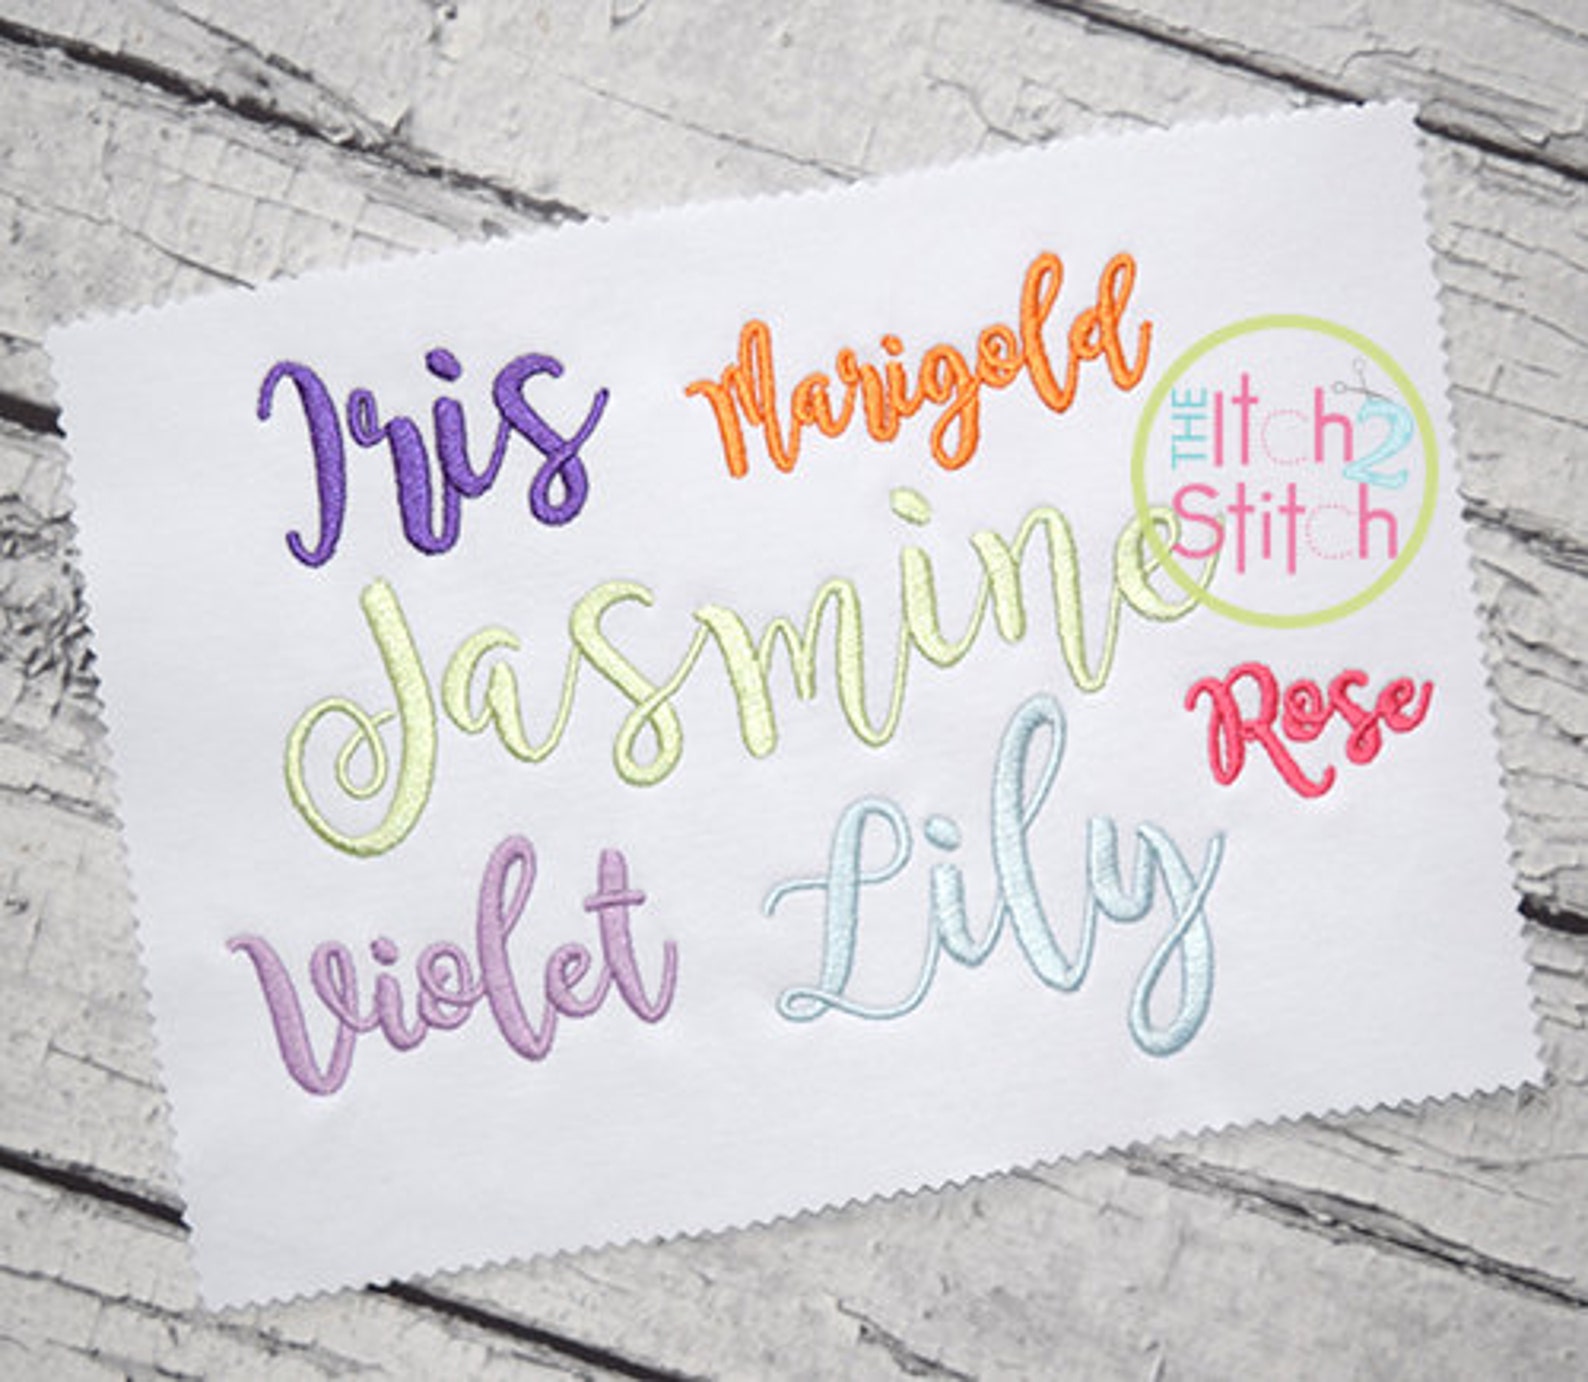 Iris
Marigold
THE Itch 2
Stitch
Jasmine
Rose
Lily
Violet